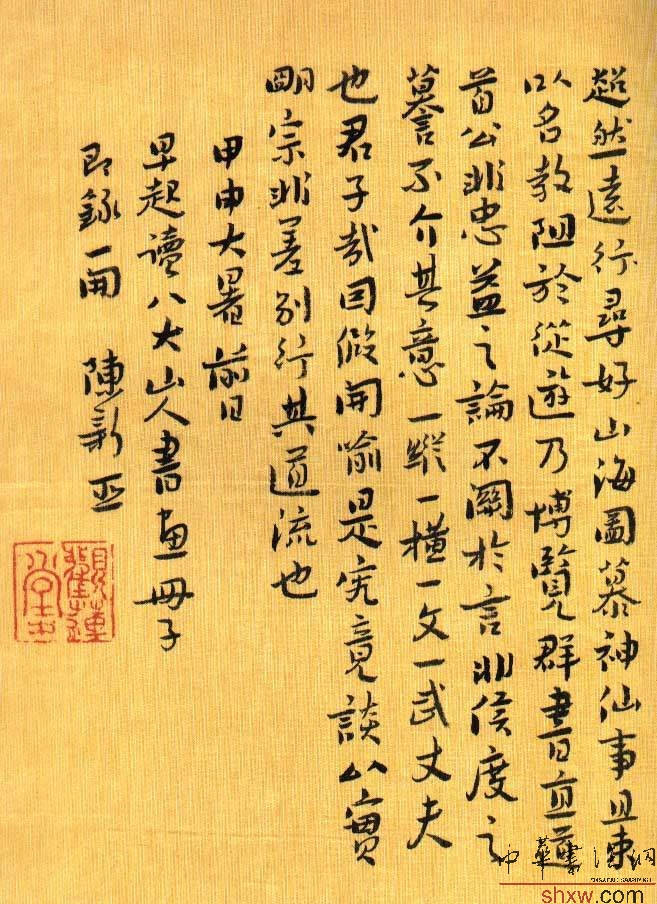 超然一遠行尋好山海圖慕神仙事且束
以名教阻於從遊乃博覽群書
公非忠益之論不關於言非侯度之
謩不介其意一縱一橫一文一武丈夫
也君子哉因假開喻是究竟談公實
明宗非差別行其道流也
甲申大暑前日
早起讀八大山人書畫冊子
即錄一開 陳新亞
中華書法網
shxw.com